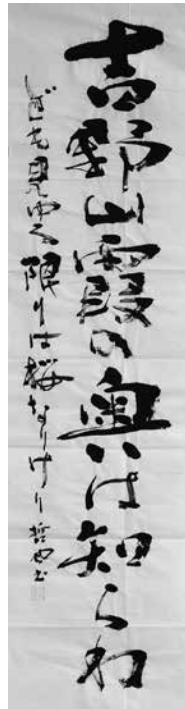 吉野山霞の奥は知らね
ども見ゆる限りは桜なりけり